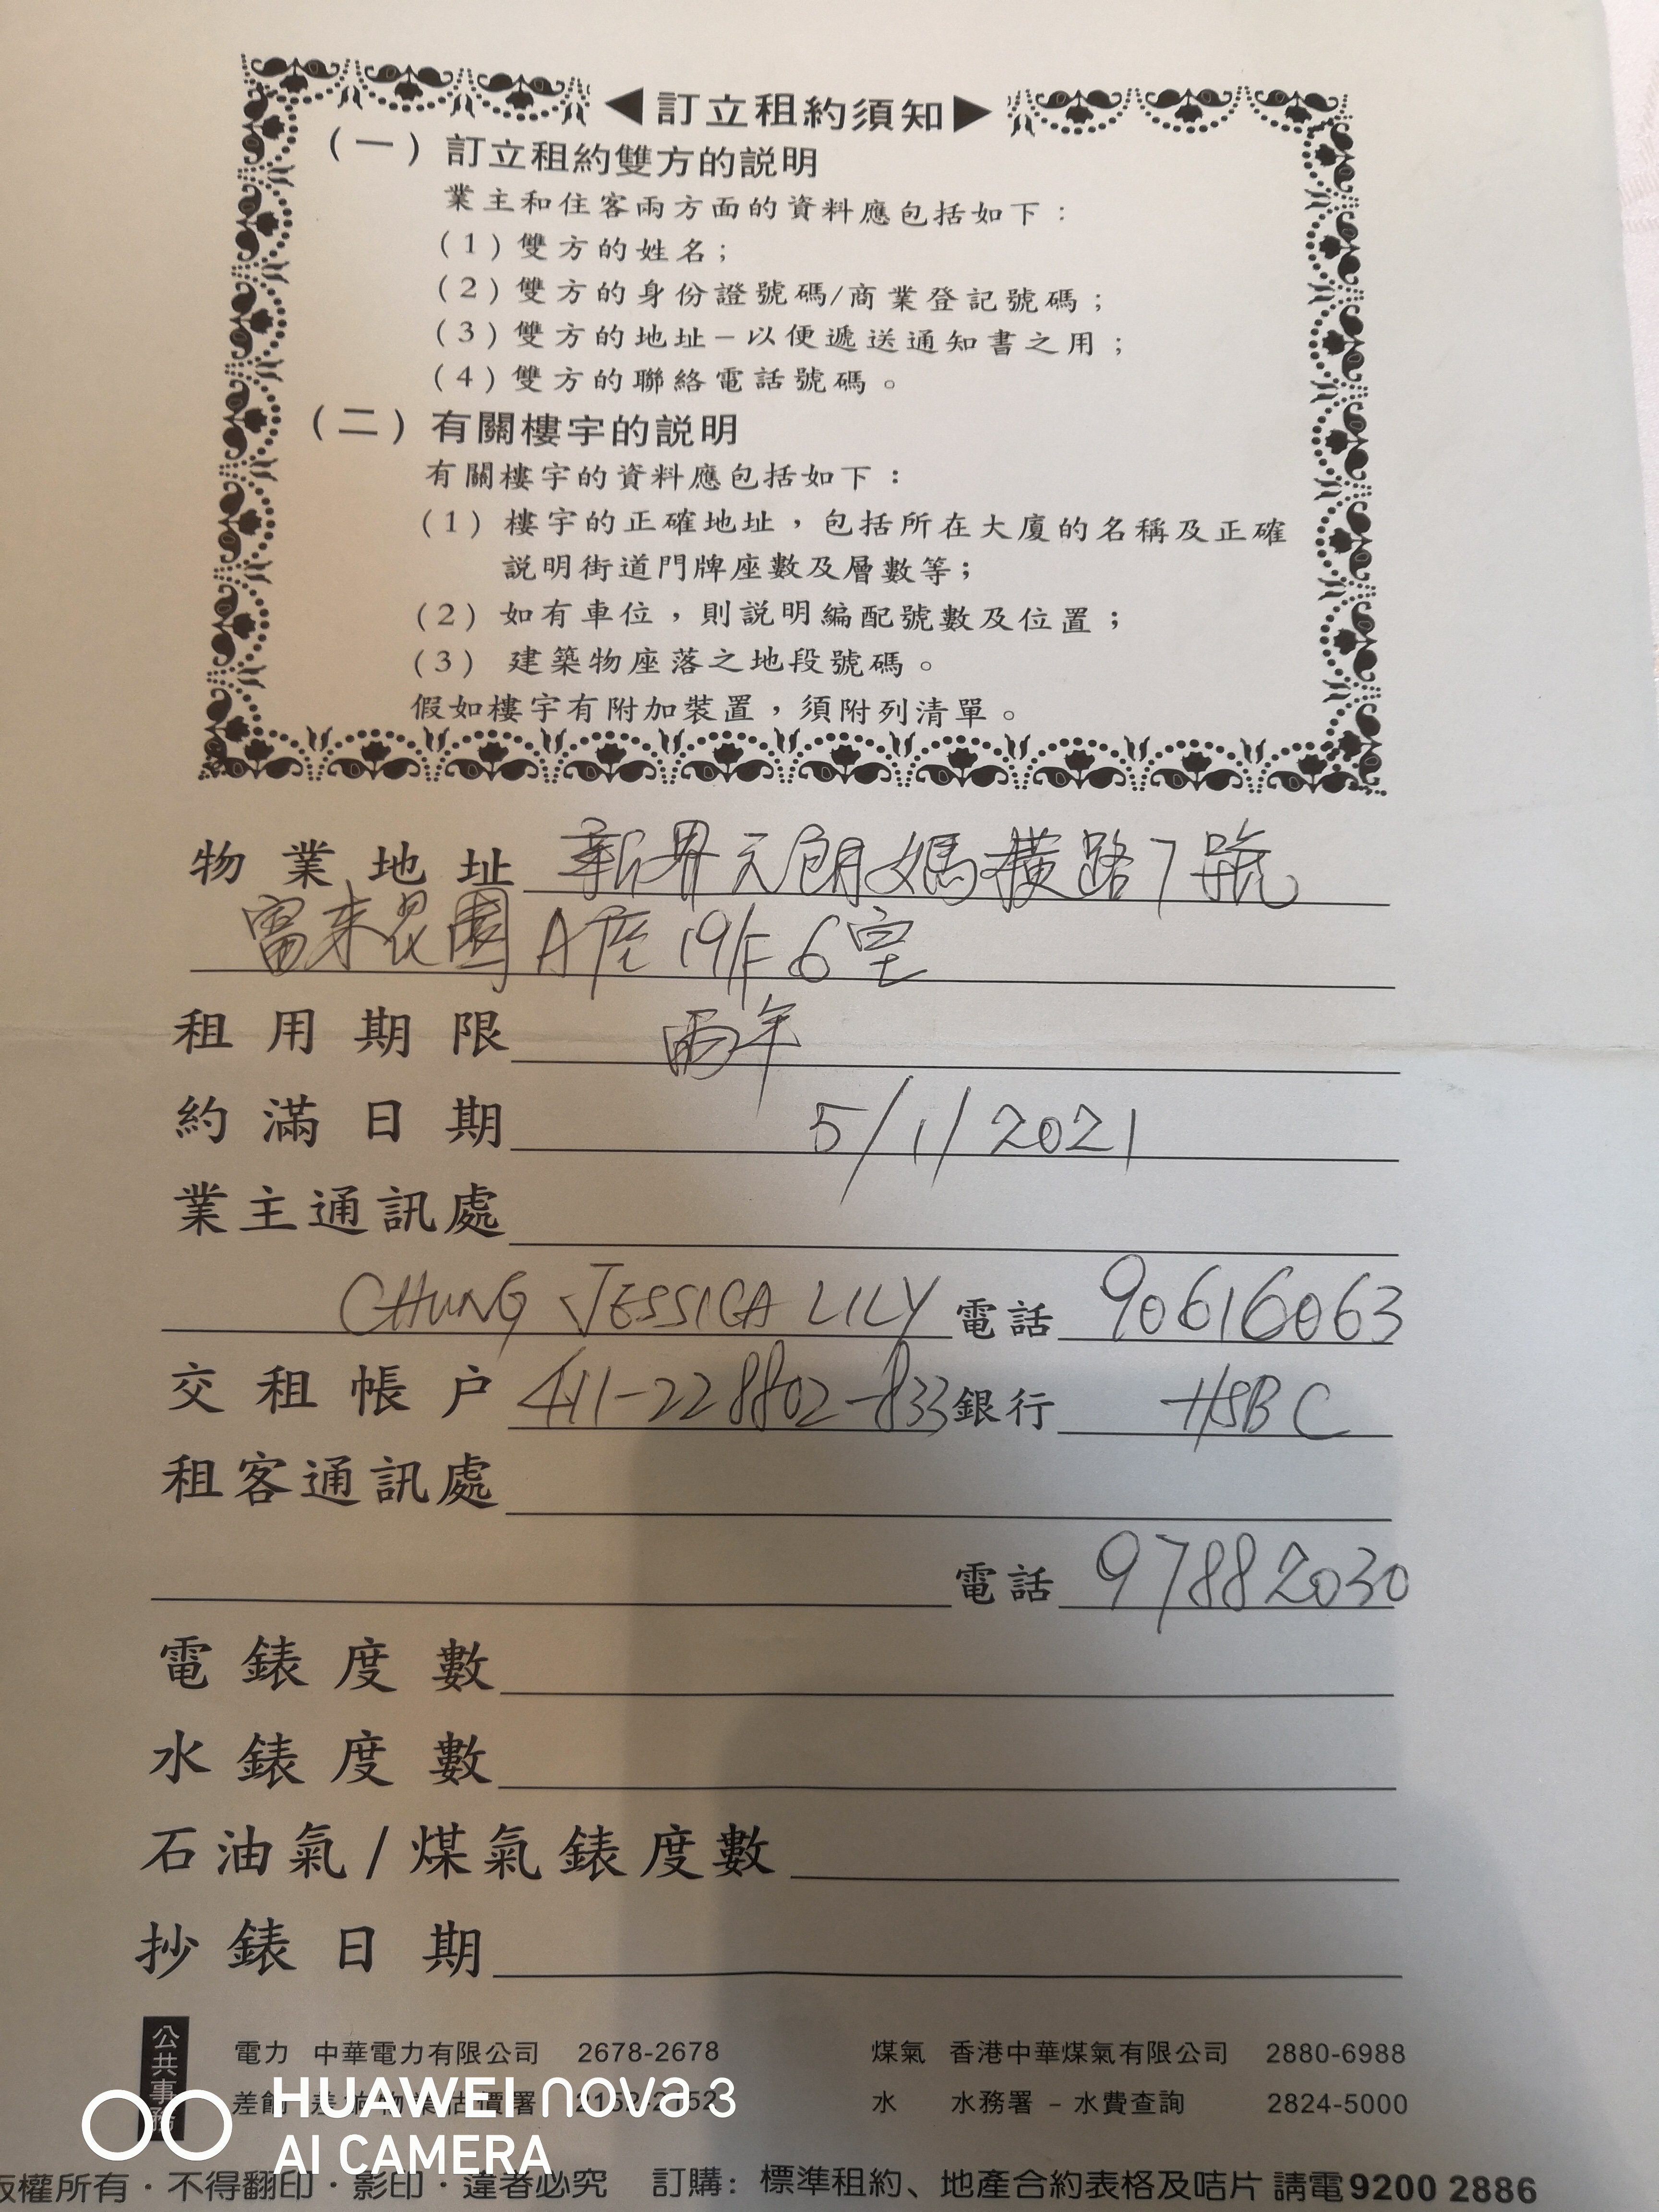 ◀訂立租約須知▶
(一)訂立租約雙方的說明
業主和住客兩方面的資料應包括如下：
(1)雙方的姓名；
(2)雙方的身份證號碼/商業登記號碼；
(3)雙方的地址－以便遞送通知書之用；
(4)雙方的聯絡電話號碼。
(二)有關樓宇的說明
有關樓宇的資料應包括如下：
(1)樓宇的正確地址，包括所在大廈的名稱及正確
說明街道門牌座數及層數等；
(2)如有車位，則說明編配號數及位置；
(3) 建築物座落之地段號碼。
假如樓宇有附加裝置，須附列清單。
物業地址 新界元朗媽橫路7號
富來花園 A座 19/F 6室
租用期限 兩年
約滿日期 5/1/2021
業主通訊處
CHUNG JESSICA LILY 電話 90616063
交租帳戶 411-228802-833 銀行 HSBC
租客通訊處
電話 97882030
電錶度數
水錶度數
石油氣/煤氣錶度數
抄錶日期
公共事務
電力 中華電力有限公司 2678-2678 煤氣 香港中華煤氣有限公司 2880-6988
差餉 差餉物業估價署 2152-2152 水 水務署 - 水費查詢 2824-5000
HUAWEI nova 3
AI CAMERA
版權所有·不得翻印·影印·違者必究 訂購：標準租約、地產合約表格及咭片 請電9200 2886